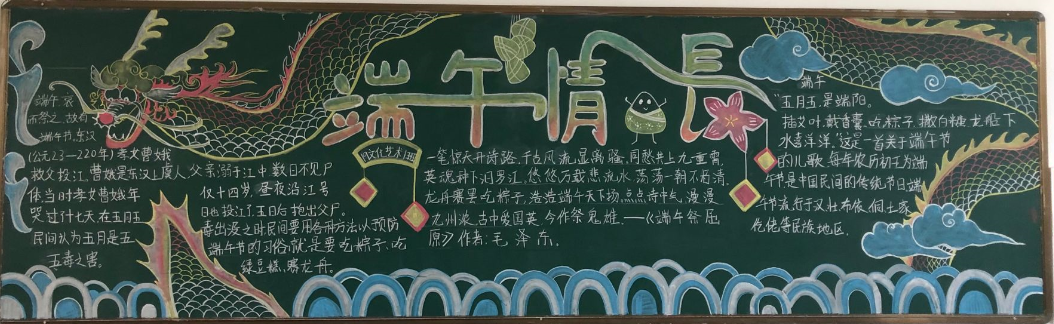 端午情长
端午装
而祭之，故有
端午节，东汉
(公元23—220年)孝女曹娥
救父投江，曹娥是东汉上虞人父亲溺于江中，数日不见尸
体，当时孝女曹娥年仅十四岁，昼夜沿江号
哭过了十七天，在五月五日也投江了，五日后抱出父尸。
民间认为五月是五毒出没之时民间要用各种方法以预防
五毒之害。端午节的习俗就是要吃粽子，吃
绿豆糕，赛龙舟。
文化艺术
一笔惊天开诗路，千古风流显离骚。同愁共上九重霄，
英魂神下汨罗江，悠悠万载悲流水，荡荡一朝不若清，
龙舟赛罢吃粽子，浩浩端午天下扬，点点诗中气，漫漫
九州浓，古中爱国英，今作祭鬼雄。——《端午祭屈
原》作者：毛泽东。
端午
"五月五，是端阳。
插艾叶，戴香囊，吃粽子，撒白糖，龙船下
水喜洋洋。"这是一首关于端午节
的儿歌，每年农历初五为端
午节是中国民间的传统节日端
午节流行于汉壮布依侗土家
仡佬等民族地区.